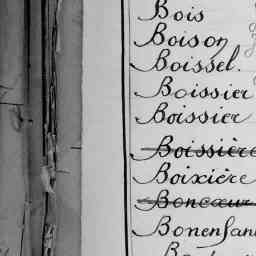 Bois
Boison
Boissel.
Boissier
Boissier
Boissière
Boixière
Boncœur
Bonenfant